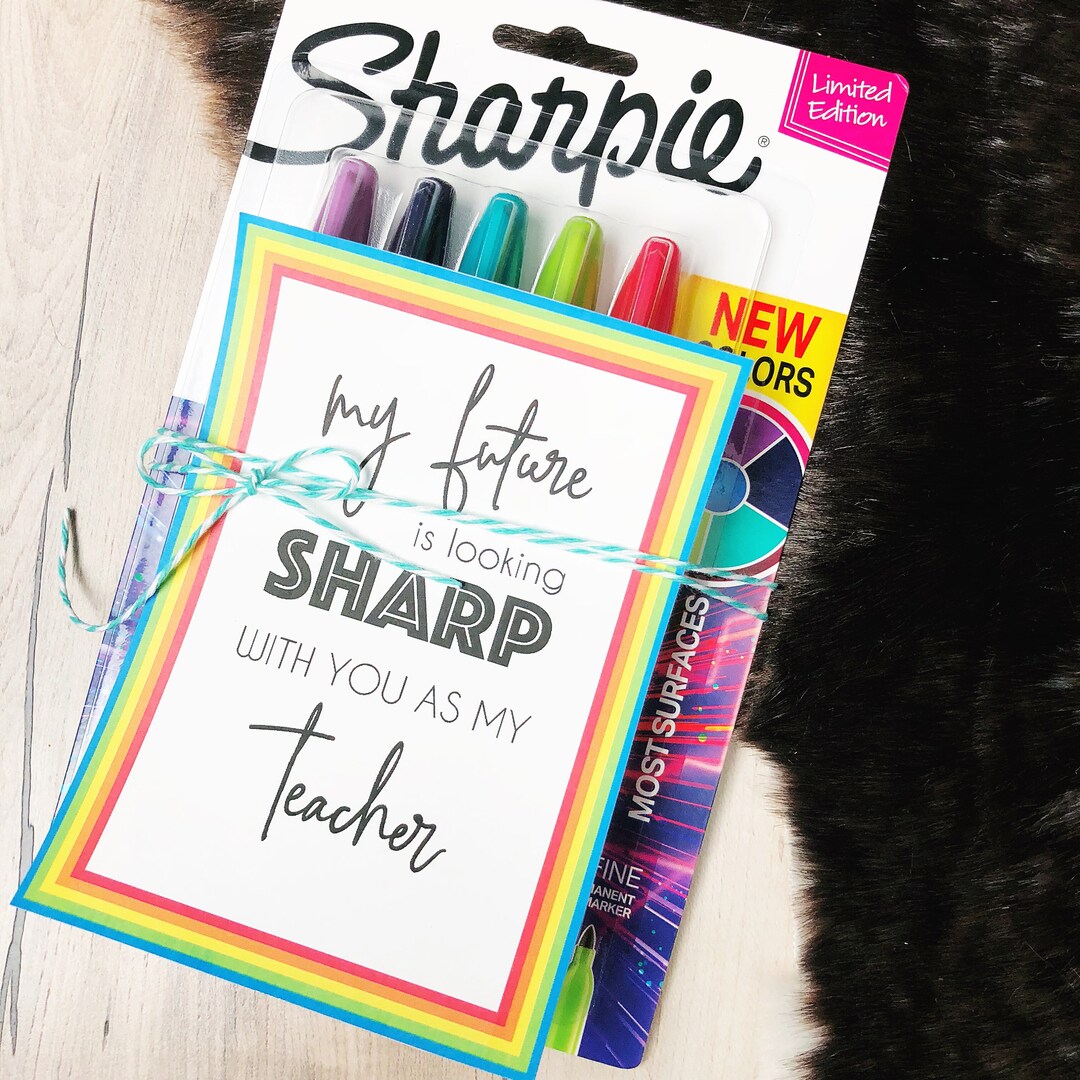 Sharpie®
Limited
Edition
NEW
COLORS
my future
is looking
SHARP
WITH YOU AS MY
Teacher
MOST SURFACES
FINE
MARKER